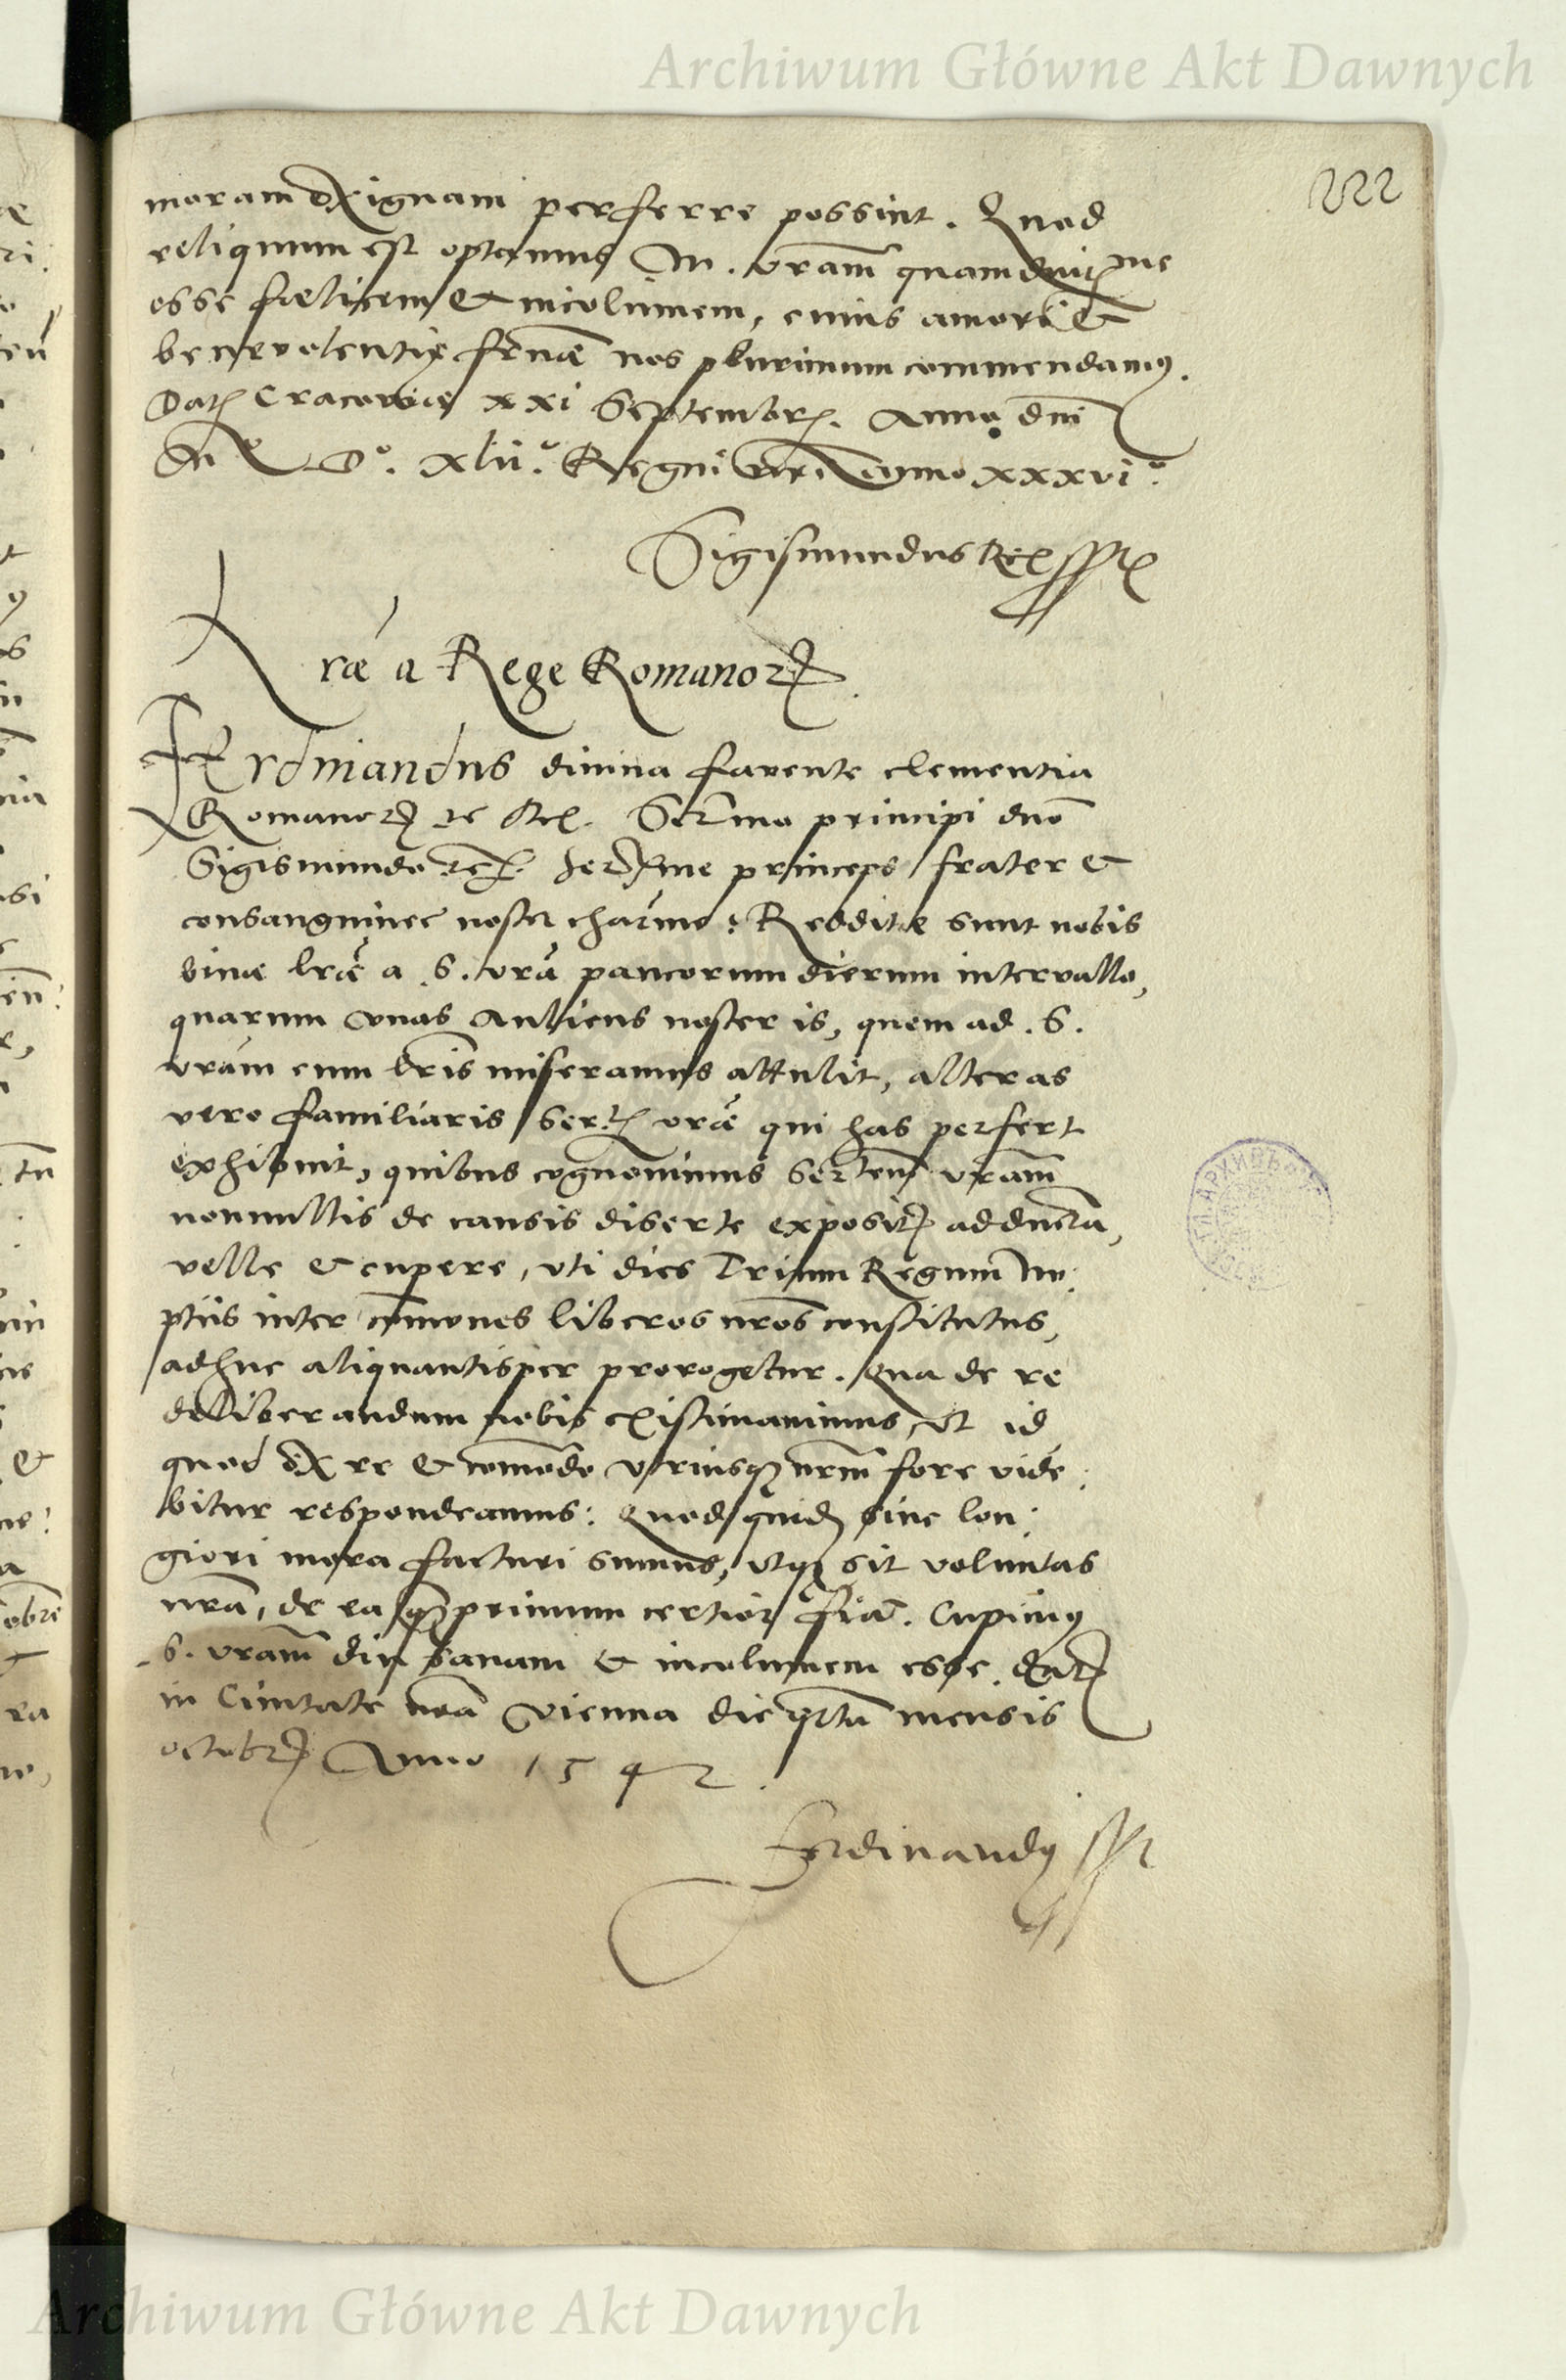 Archiwum Główne Akt Dawnych
222
moram exignam perferre possint. Quod
reliquum est optamus M. vram quam diutme
esse fœlicem et incolumem, cuius amori et
benevolentiæ frnæ nos plurimum commendamus.
Dat Cracoviæ xxi Septembr. Anno dni
M D°. xlii.° Regni nri anno xxxvi.°
Sigismundus Rex sspt
Lræ a Rege Romanor
FErdinandus divina favente clementia
Romanor etc Rex. Sermo principi dno
Sigismundo etc. Serme princeps frater et
consanguinee noster charme: Redditæ sunt nobis
binæ lræ a S. vra paucorum dierum intervallo,
quarum unas Aulicus noster is, quem ad S.
vram cum lris miseramus attulit, alteras
vero familiaris Sertis vræ qui has perfert
exhibuit, quibus cognovimus Sertem vram
nonnullis de causis diserte exposit adductam,
velle et cupere, uti dies Trium Regum nu:
ptiis inter cõmunes liberos nros constitutus,
adhuc aliquantisper prorogetur. Qua de re
deliberandum nobis existimavimus, ut id
quod ex re et comodo utriusq nrm fore vide:
bitur respondeamus: Quod quid sine lon:
giori mora facturi sumus, utq sit voluntas
nra, de ea qprimum certior fiat. Cupimus
S. vram diu sanam et incolumem esse. Dat
in Civitate nra Vienna die qrta mensis
octobr Anno 1542.
Ferdinandus sspt
Archiwum Główne Akt Dawnych